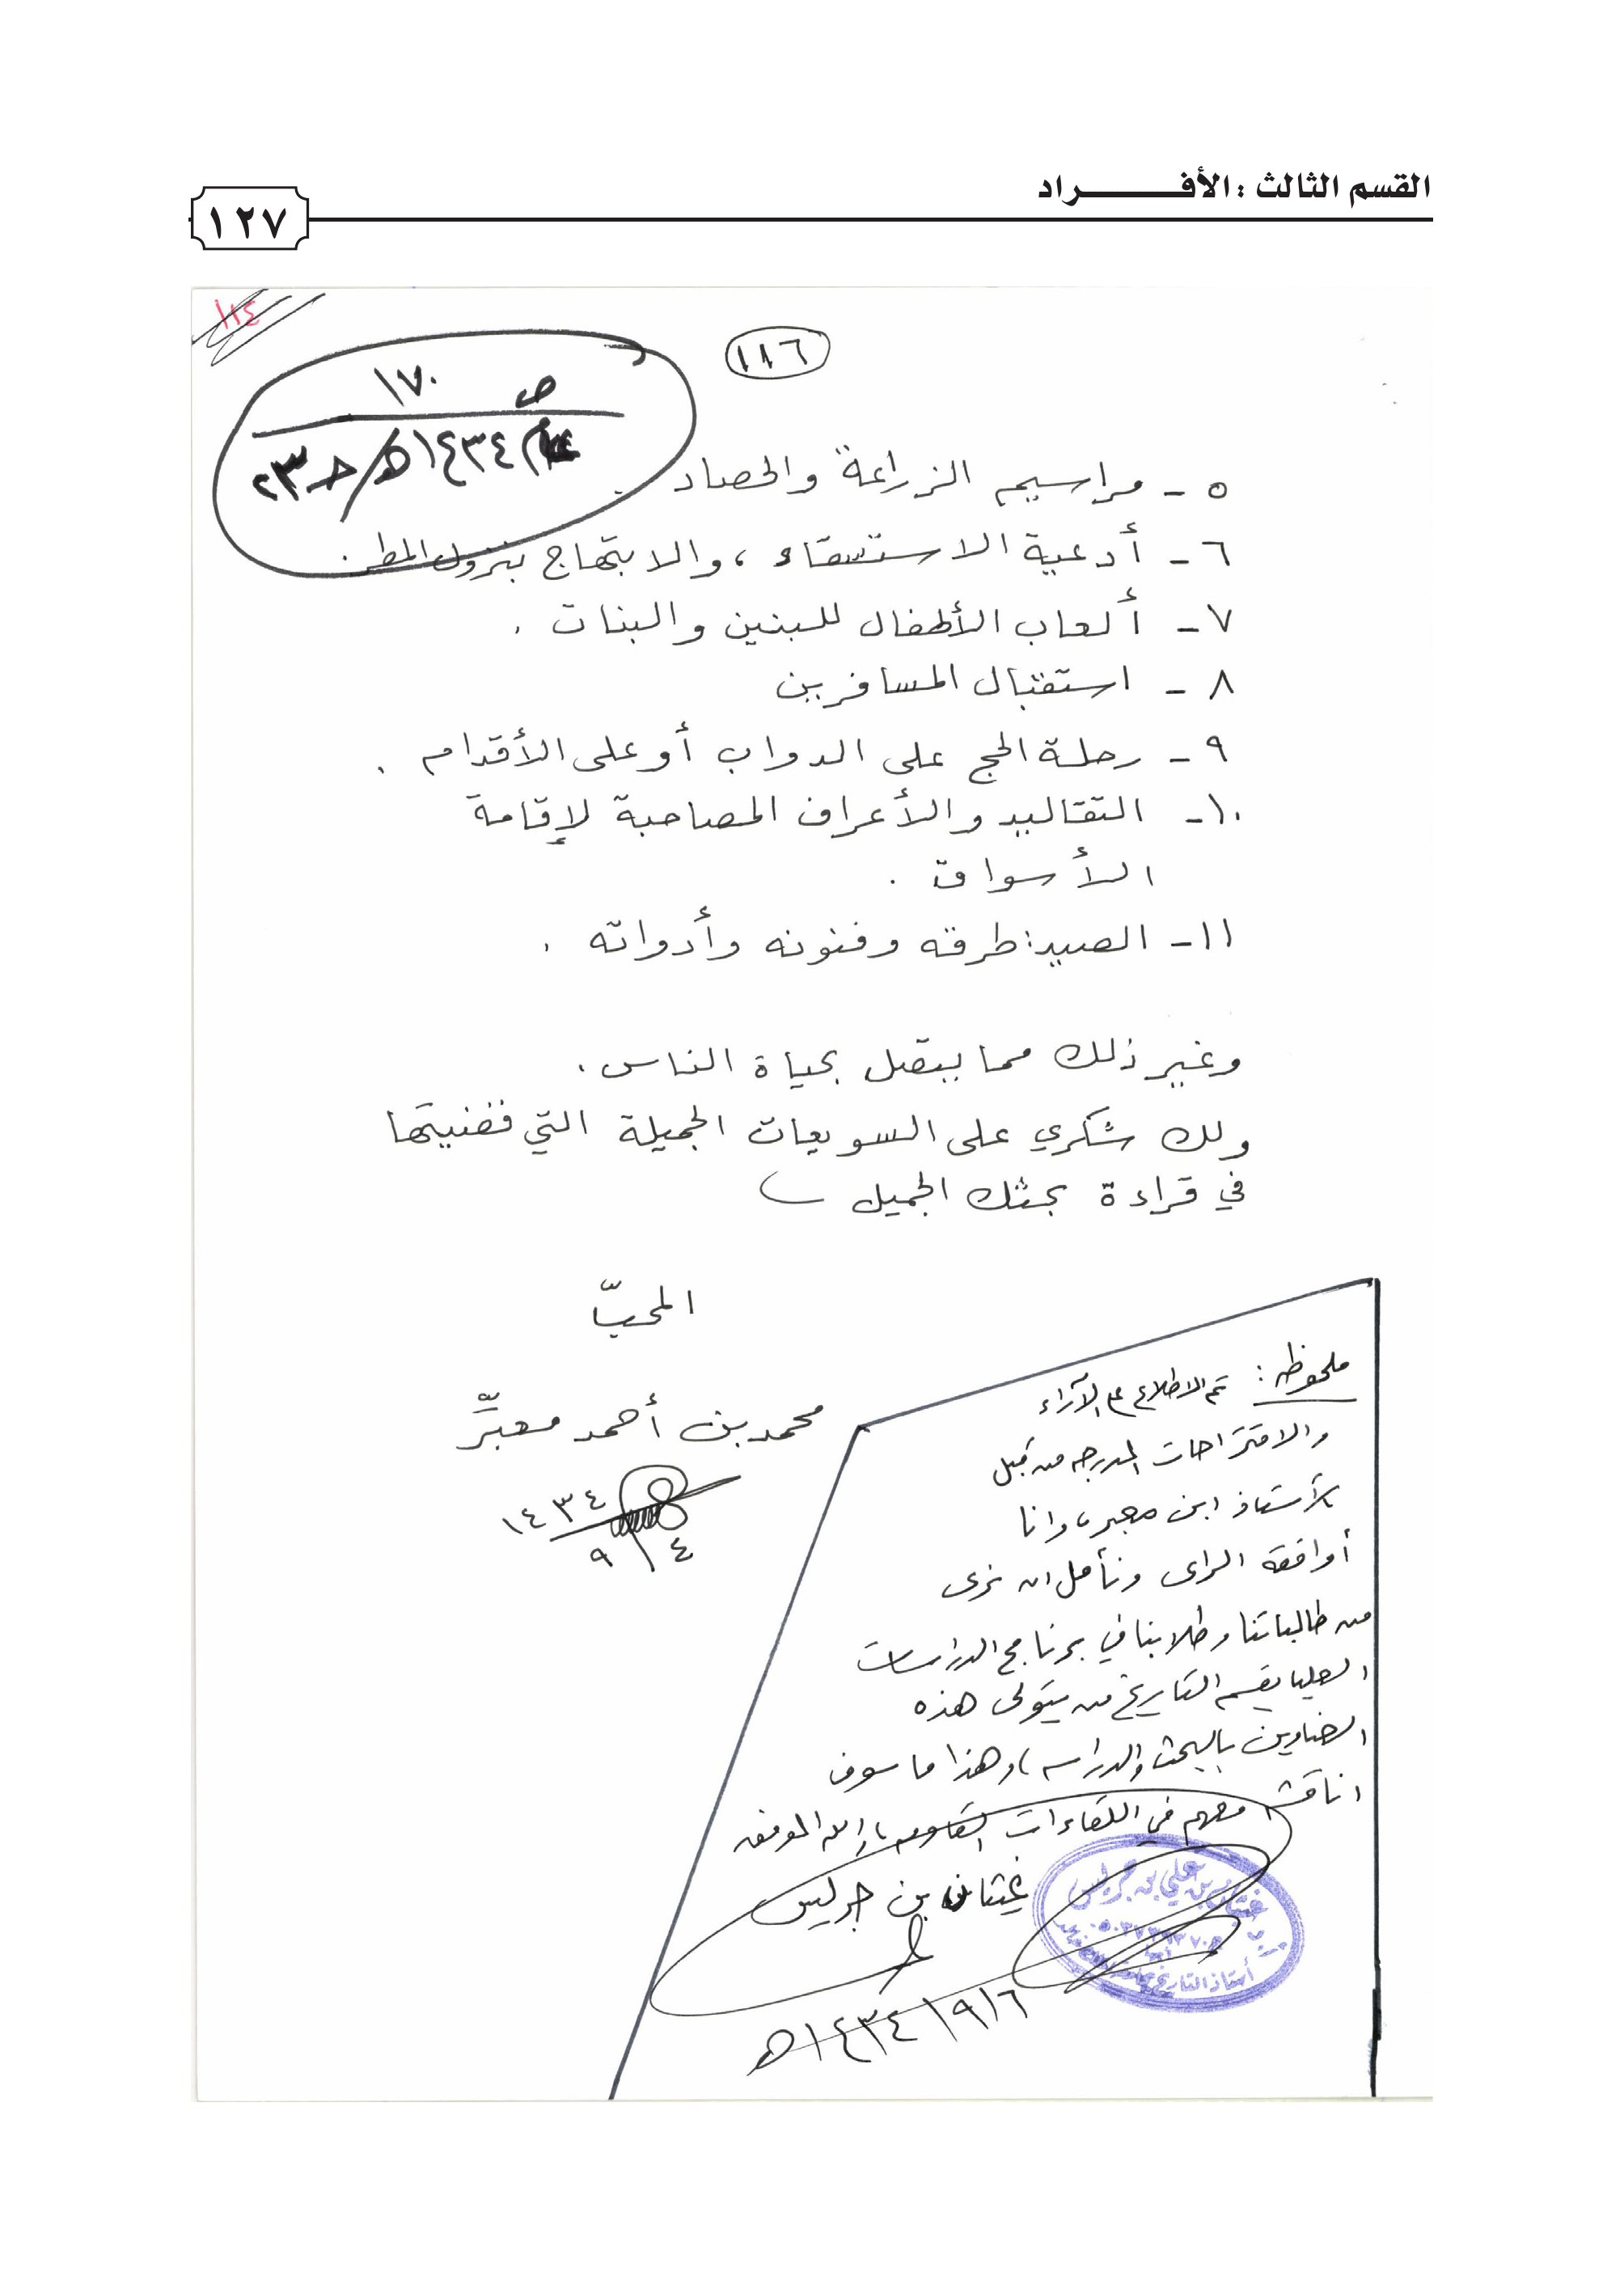 القسم الثالث : الأفـــــراد
١٢٧
١١٤
١١٦
ص ١٧٠
١٤٣٤هـ / جـ ٢٣
٥ - مراسيم الزراعة والحصاد .
٦ - أدعية الاستسقاء ، والابتهاج بنزول المطر .
٧ - ألعاب الأطفال للبنين والبنات .
٨ - استقبال المسافرين
٩ - رحلة الحج على الدواب أو على الأقدام .
١٠ - التقاليد والأعراف المصاحبة لإقامة
الأسواق .
١١ - الصيد : طرقه وفنونه وأدواته .
وغير ذلك مما يتصل بحياة الناس .
ولك شكري على السويعات الجميلة التي قضيتها
في قراءة بحثك الجميل
المحبّ
محمد بن أحمد معبّر
١٤٣٤
٤ / ٩
ملحوظه : تم الاطلاع على الآراء
والاقتراحات المدرجه من قبل
الأستاذ ابن معبر ، وانا
أوافقه الراى ونأمل ان نرى
من طالباتنا وطلابنا في برنامج الدراسات
العليا بقسم التاريخ من يتولى هذه
العناوين بالبحث والدراسه ، وهذا ما سوف
اناقشه معهم في اللقاءات القادمه ، والله الموفق
غيثان بن جريس
غيثان بن علي بن جريس
أستاذ التاريخ
٦ / ٩ / ١٤٣٤هـ